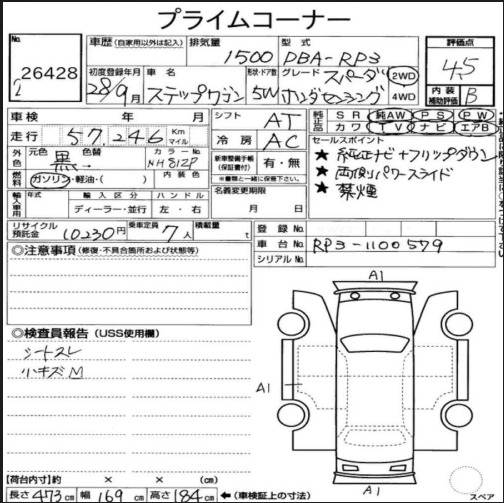 プライムコーナー
No.
26428
車歴 (自家用以外は記入)
排気量 1500
型式 DBA-RP3
評価点 4.5
初度登録年月 28年9月
車名 ステップワゴン
形状・ドア数 5W
グレード スパーダ ホンダセンシング
2WD
4WD
内装補助評価 B
車検 年 月
シフト AT
純正品 SR 純AW PS PW
カワ TV ナビ エアB
走行 57,246 Km マイル
冷房 AC
セールスポイント
★ 純正ナビ+フリップダウン
★ 両側パワースライド
★ 禁煙
外色 元色 黒 色替 カラーNo. NH812P
燃料 ガソリン・軽油・( ) 内装色
新車整備手帳 (保証書付) 有・無
※書類と一緒に保管下さい。
輸入車用 年式 輸入区分 ハンドル
ディーラー・並行 左・右
名義変更期限
月 日
リサイクル預託金 10230円
乗車定員 7人
積載量 t
登録No.
車台No. RP3-1100579
シリアルNo.
◎注意事項 (修復・不具合箇所および状態等)
◎検査員報告 (USS使用欄)
シートスレ
小キズM
A1
A1
A1
【荷台内寸】約 × × (cm)
長さ 473cm 幅 169cm 高さ 184cm ←(車検証上の寸法)
スペア